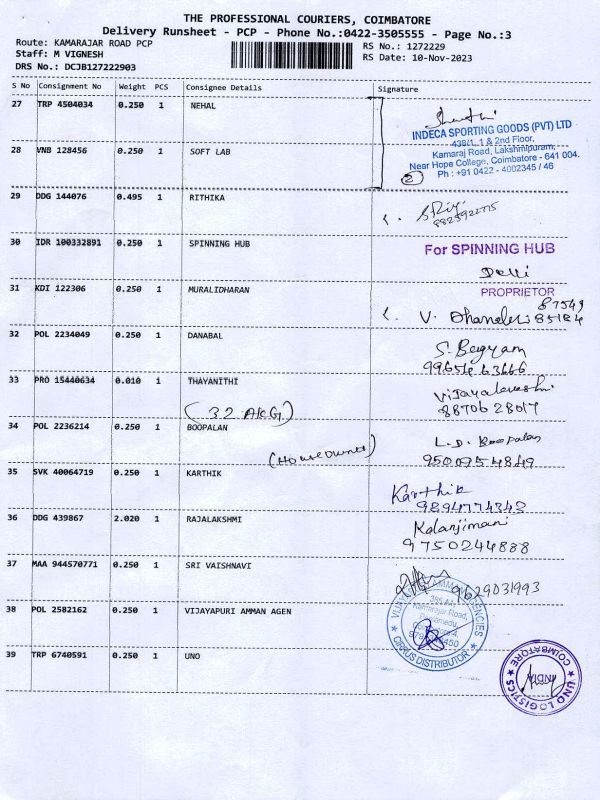 THE PROFESSIONAL COURIERS, COIMBATORE
Delivery Runsheet - PCP - Phone No.:0422-3505555 - Page No.:3
Route: KAMARAJAR ROAD PCP
RS No.: 1272229
Staff: M VIGNESH
RS Date: 10-Nov-2023
DRS No.: DCJB127222903
S No Consignment No Weight PCS Consignee Details Signature
27 TRP 4504034 0.250 1 NEHAL
INDECA SPORTING GOODS (PVT) LTD
438/1, 1 & 2nd Floor,
28 VNB 128456 0.250 1 SOFT LAB
Kamaraj Road, Lakshmipuram,
Near Hope College, Coimbatore - 641 004.
Ph : +91 0422 - 4002345 / 46
2
29 DDG 144076 0.495 1 RITHIKA
30 IDR 100332891 0.250 1 SPINNING HUB
For SPINNING HUB
PROPRIETOR
31 KDI 122306 0.250 1 MURALIDHARAN
V.
32 POL 2234049 0.250 1 DANABAL
S.
33 PRO 15440634 0.010 1 THAYANITHI
(32 AKG)
34 POL 2236214 0.250 1 BOOPALAN
(House owner)
L.D. Boopalan
35 SVK 40064719 0.250 1 KARTHIK
Karthik
9894774343
36 DDG 439867 2.020 1 RAJALAKSHMI
Kalanjimani
9750244888
37 MAA 944570771 0.250 1 SRI VAISHNAVI
9629031993
38 POL 2582162 0.250 1 VIJAYAPURI AMMAN AGEN
Kamarajar Road,
CIRRUS DISTRIBUTOR
39 TRP 6740591 0.250 1 UNO
UNO LOGISTICS
COIMBATORE
INDIA